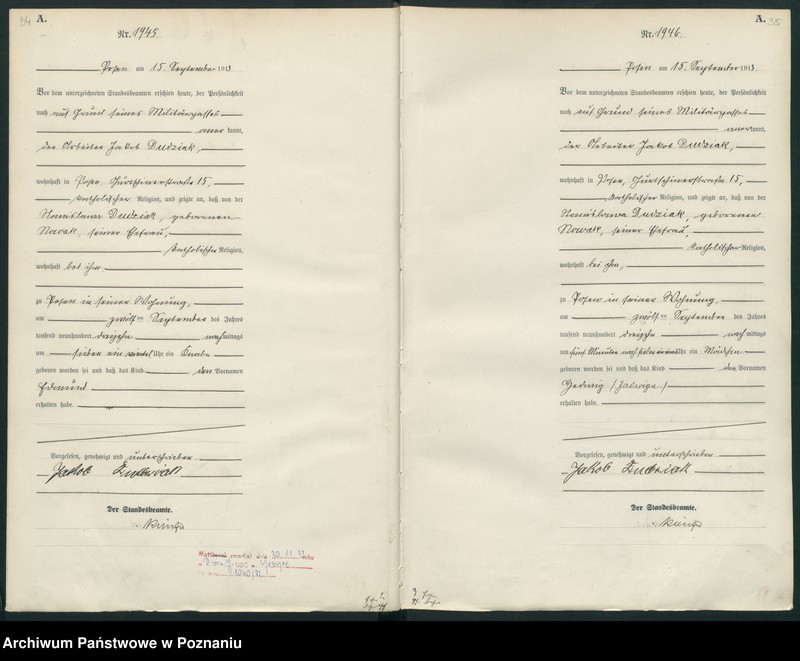 34
A.
Nr. 1945.
Posen am 15. September 1913
Vor dem unterzeichneten Standesbeamten erschien heute, der Persönlichkeit
nach auf Grund seines Militärpasses
anerkannt,
der Arbeiter Jakob Dudziak,
wohnhaft in Posen, 15,
katholischer Religion, und zeigte an, daß von der
Stanislawa Dudziak, geborenen
Nowak, seiner Ehefrau,
katholischer Religion,
wohnhaft bei ihm
zu Posen in seiner Wohnung,
am zwölften September des Jahres
tausend neunhundert dreizehn nachmittags
um sieben ein viertel Uhr ein Knabe
geboren worden sei und daß das Kind den Vornamen
Edmund
erhalten habe.
Vorgelesen, genehmigt und unterschrieben
Jakob Dudziak
Der Standesbeamte.
A.
35
Nr. 1946.
Posen am 15. September 1913.
Vor dem unterzeichneten Standesbeamten erschien heute, der Persönlichkeit
nach auf Grund seines Militärpasses
anerkannt,
der Arbeiter Jakob Dudziak,
wohnhaft in Posen, 15,
katholischer Religion, und zeigte an, daß von der
Stanislawa Dudziak, geborenen
Nowak, seiner Ehefrau,
katholischer Religion,
wohnhaft bei ihm,
zu Posen in seiner Wohnung,
am zwölften September des Jahres
tausend neunhundert dreizehn nachmittags
um fünf Minuten nach sieben ein viertel Uhr ein Mädchen
geboren worden sei und daß das Kind den Vornamen
Hedwig (Jadwiga)
erhalten habe.
Vorgelesen, genehmigt und unterschrieben
Jakob Dudziak
Der Standesbeamte.
Archiwum Państwowe w Poznaniu